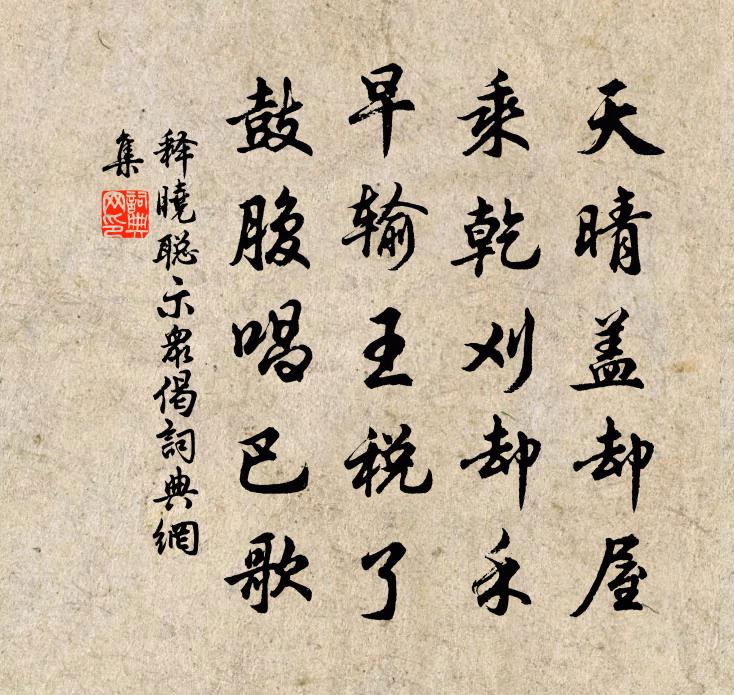 天晴盖却屋
乘乾刈却禾
早输王税了
鼓腹唱巴歌
释曉聪示眾偈詞典網
集
詞典
网印